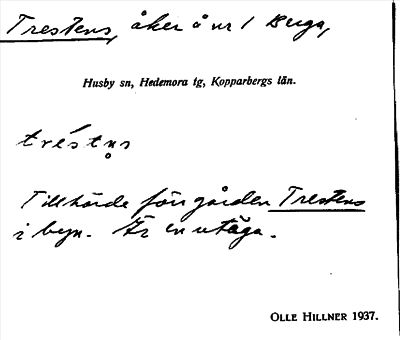 Trestens, åker å nr 1 Buga,
Husby sn, Hedemora tg, Kopparbergs län.
tréstn̥s
Tillhörde förr gården Trestens
i byn. Är en utäga.
OLLE HILLNER 1937.